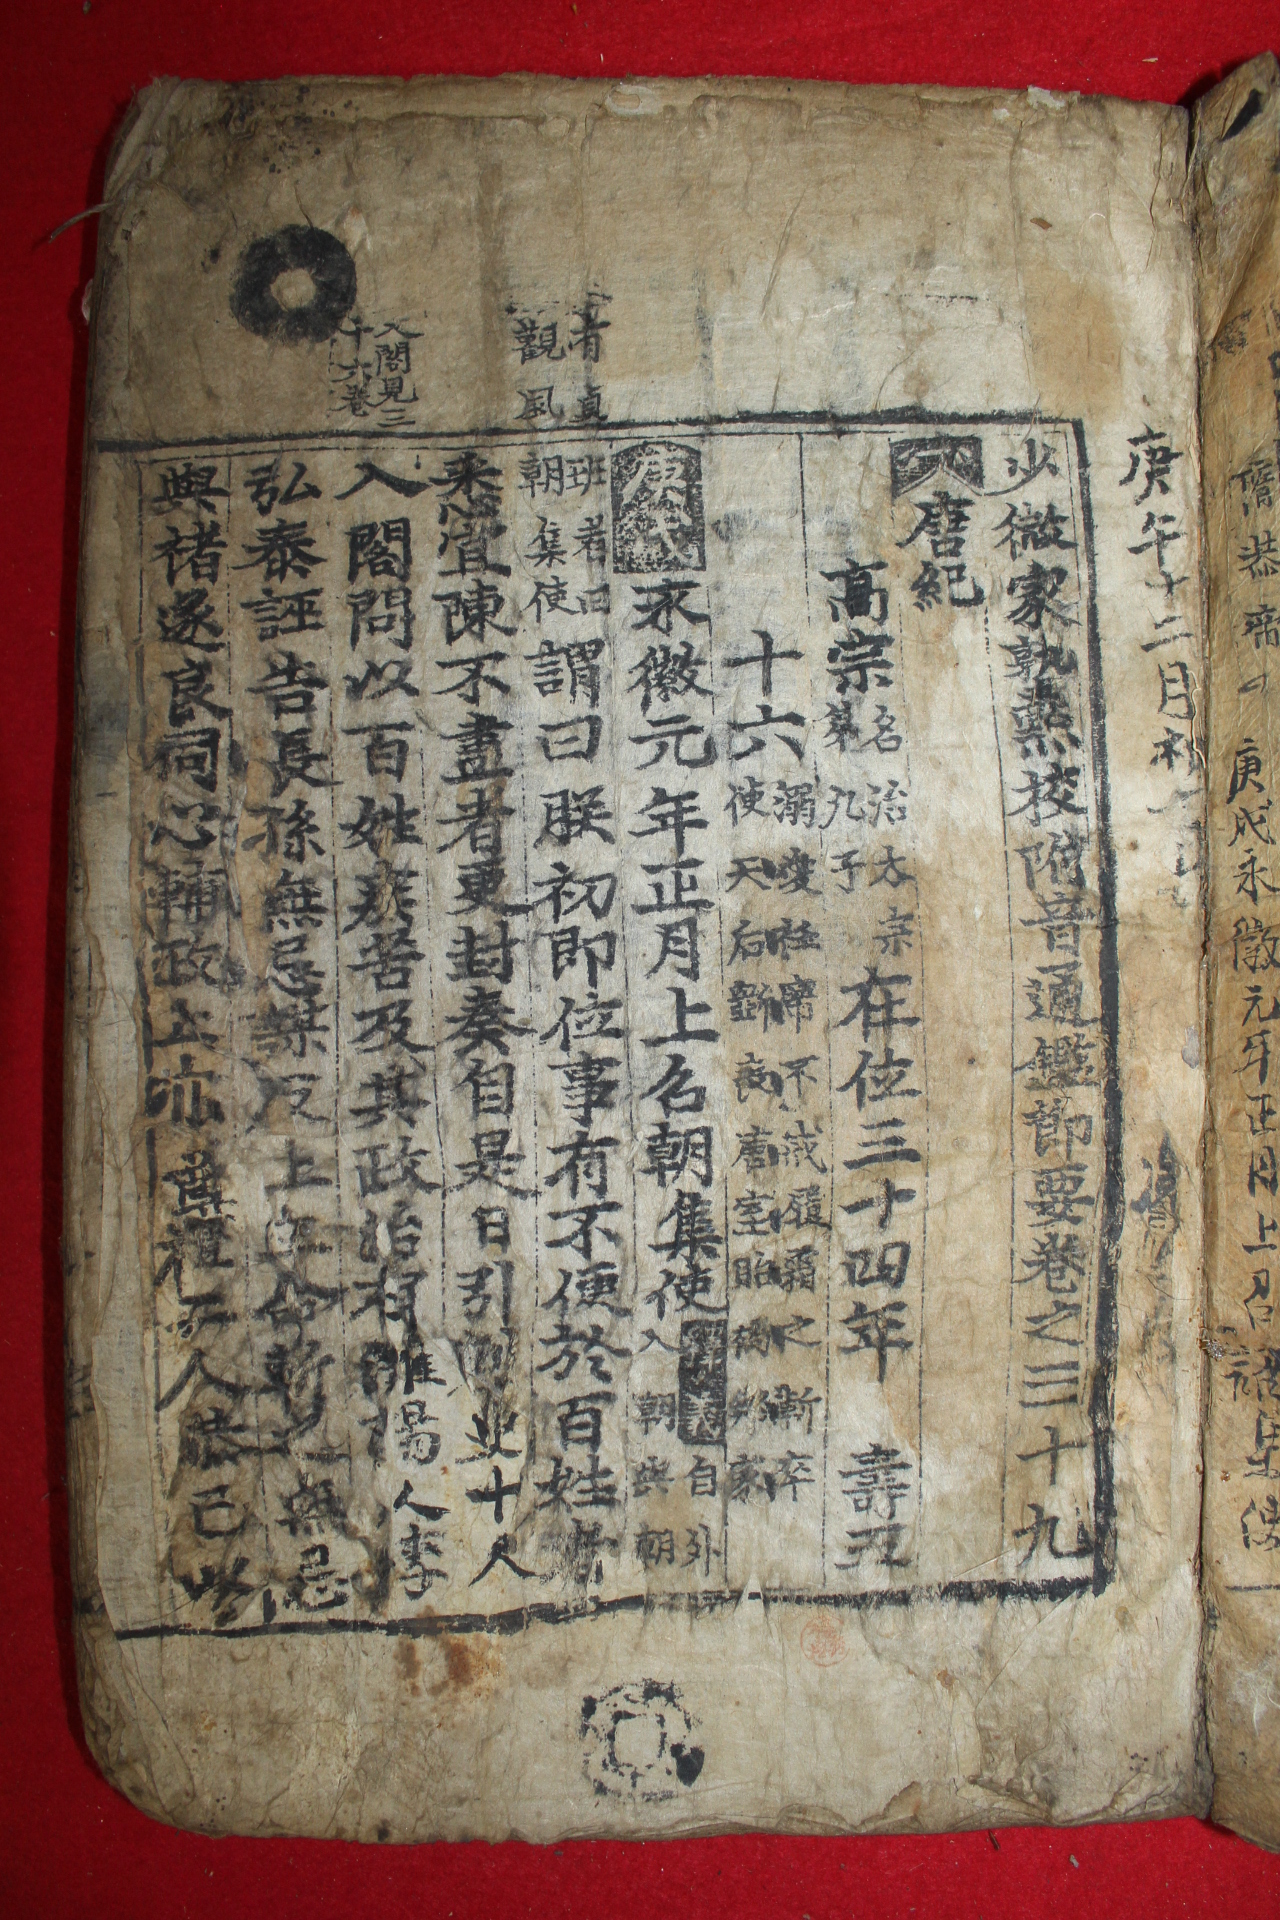 庚午十二月
少微家塾點校附音通鑑節要卷之三十九
唐紀
高宗 名治太宗第九子 在位三十四年 壽五
十六 溺愛衽席不戒履霜之漸卒使天后斲喪唐室貽禍邦家
庚戌 永徽元年正月上召朝集使 自外入朝與朝
班者曰朝集使 謂曰朕初卽位事有不便於百姓者
悉宜陳不盡者更封奏自是日引刺史十人
入閤問以百姓疾苦及其政治有雒陽人李
弘泰誣告長孫無忌謀反上立命斬之無忌
與褚遂良同心輔政上亦尊禮二人恭己
有貞
觀風
入閤見三
十六卷
庚戌永徽元年正月上召